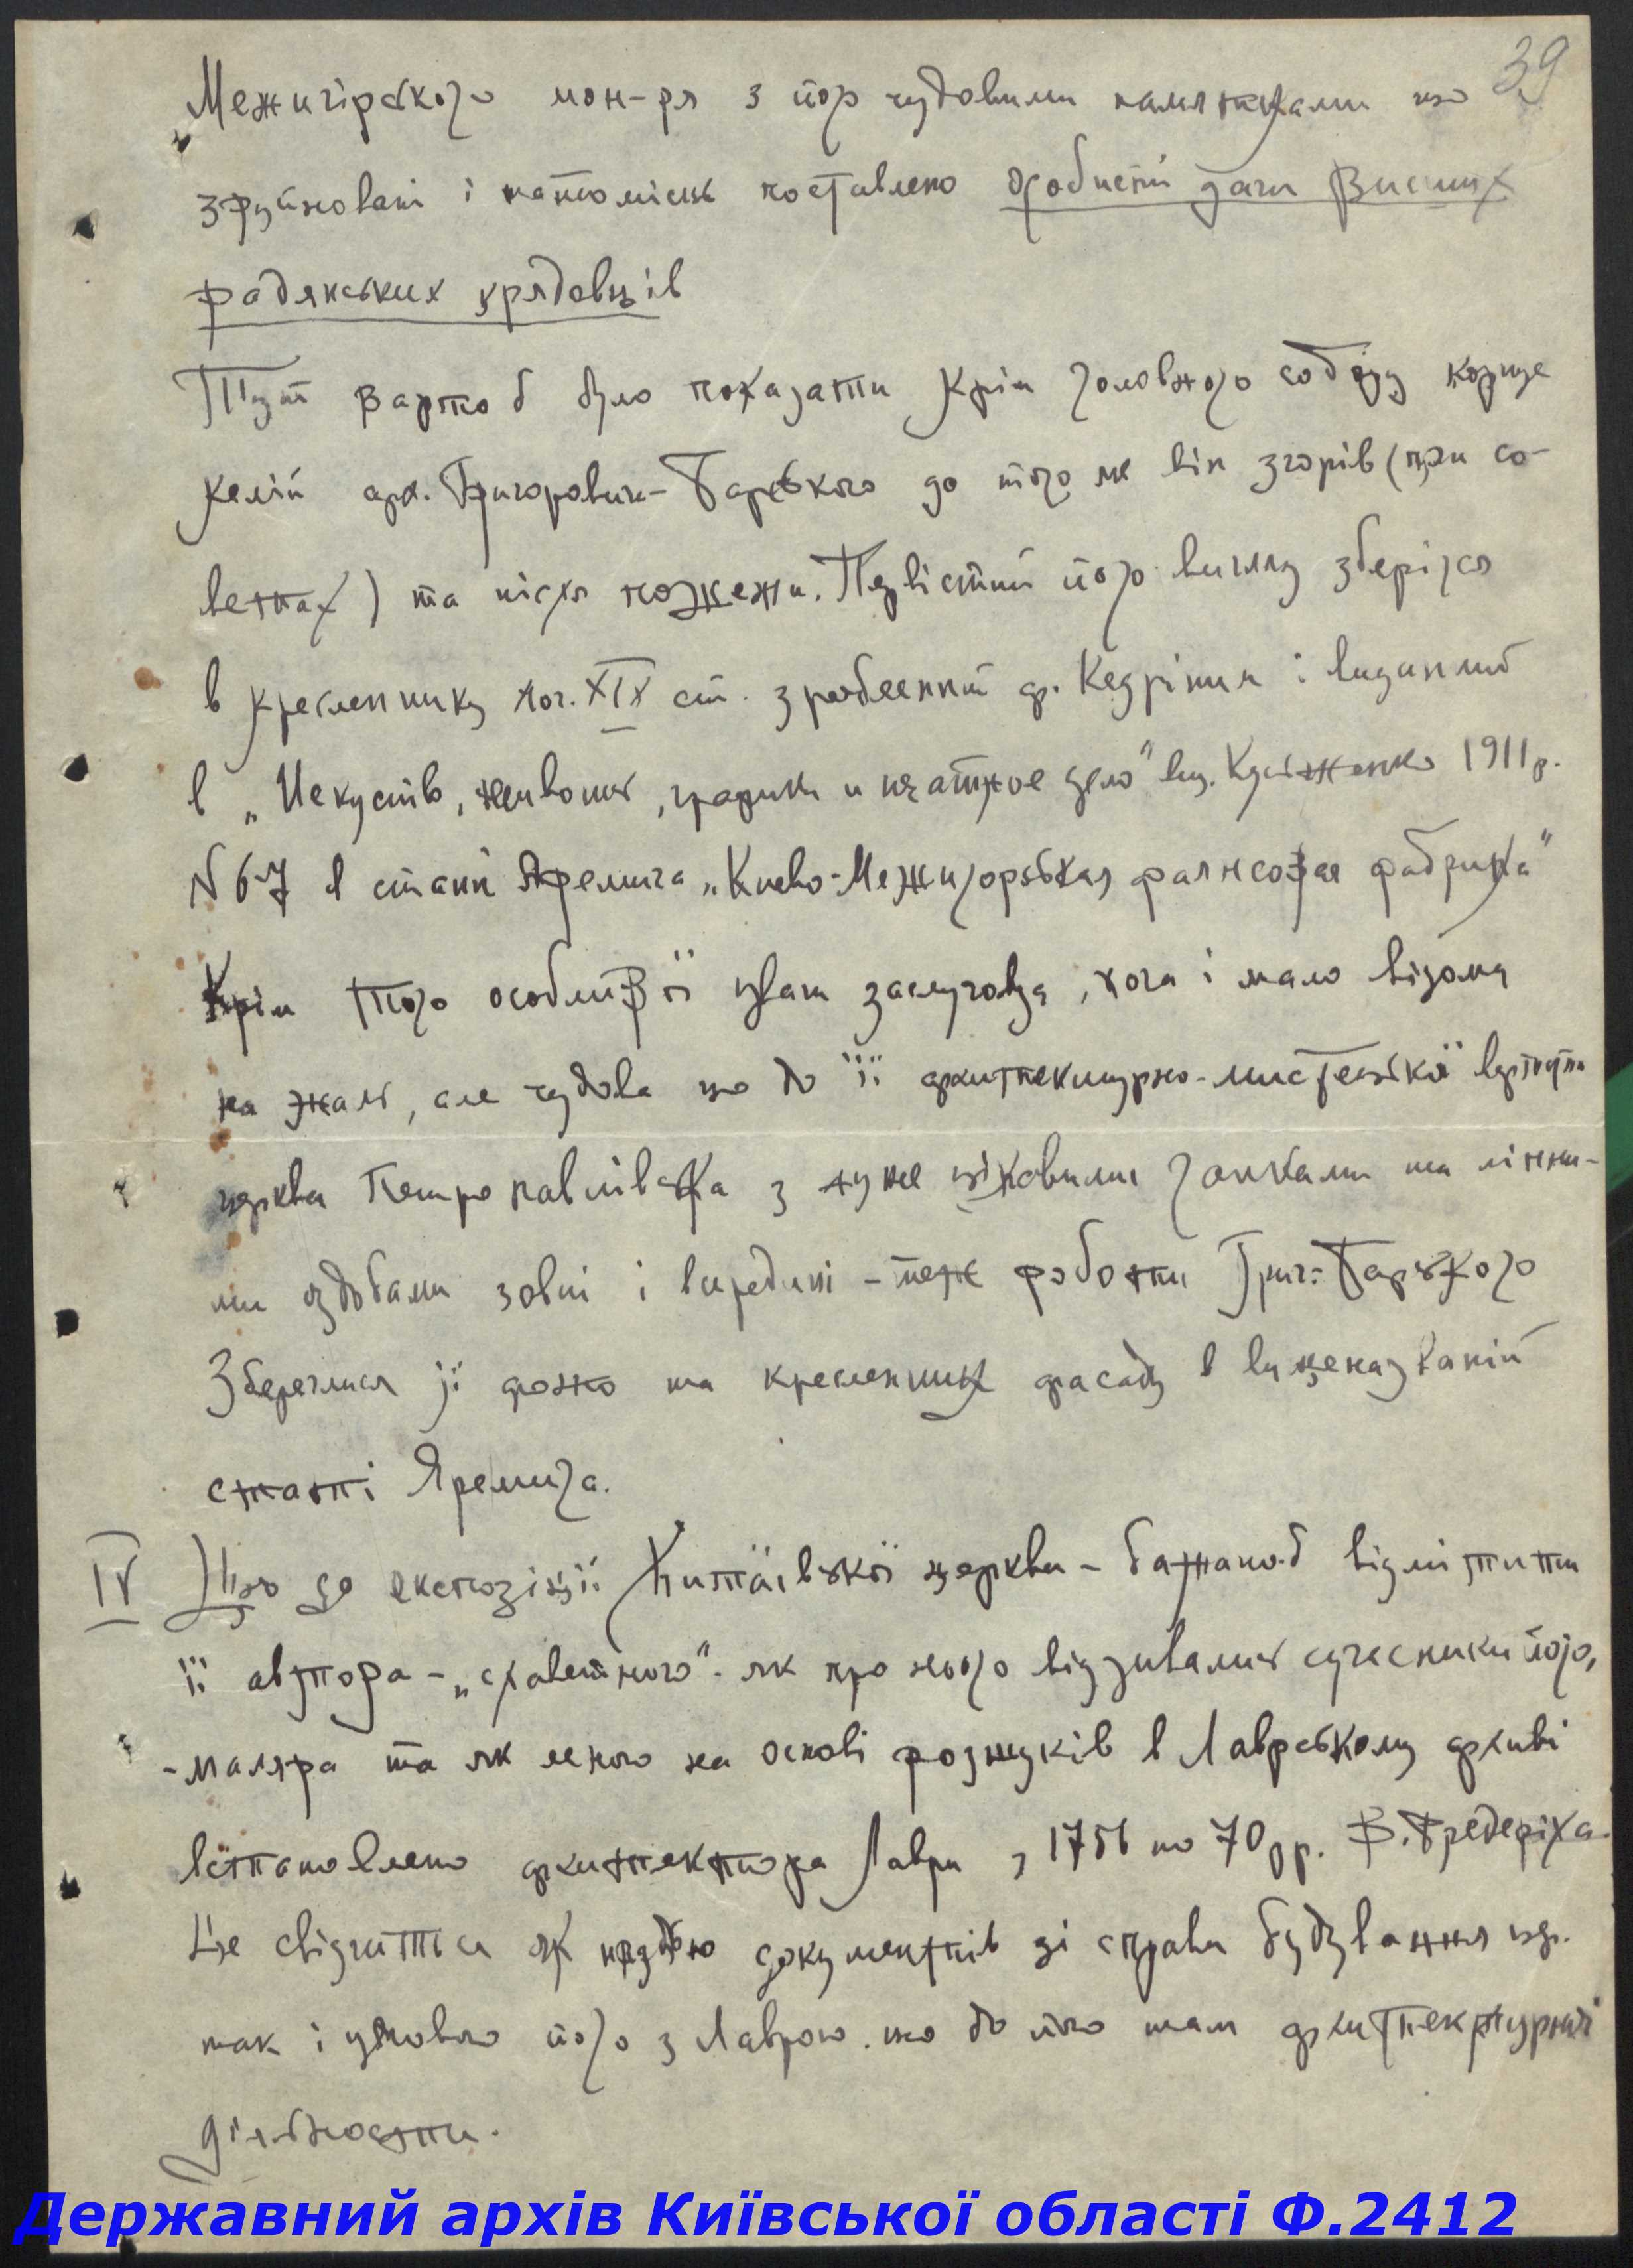 39
Межигірського мон-ря з його чудовими памятками що
зруйновані і натомісць поставлено особисті дачи висших
радянських урядовців
Тут варто б було показати крім головного собору корпус
келій арх. Григоровича-Барського до того як він згорів (при со-
ветах) та після пожежи. Первістний його вигляд зберігся
в кресленнику поч. XIX ст. зробленний ар. Кедріним і виданний
в „Искуство, живопись, графика и печатное дело" вид. Кульженко 1911 р.
№ 6-7 в статті Яремича „Киево-Межигорська фаянсовая фабрика"
Крім того особливої уваги заслуговує, хоча і мало відома
на жаль, але чудова що до її архитектурно-мистецької вартости
церква Петропавлівська з дуже цікавими ганками та ліпни-
ми оздобами зовні і всередині - теж роботи Григ.-Барського
Збереглися її фото та кресленник фасаду в вищеназваній
статті Яремича.
IV Що до експозиції Китаївської церкви - бажано-б відмітити
її автора - „славетного" - як про нього відзивались сучасники його,
- маляра та як мною на основі розшуків в Лаврському архиві
встановлено архитектора Лаври з 1756 по 70 рр. В. Фредеріха.
Це свідчиться як низкою документів зі справи будування цер.
так і умовою його з Лаврою що до його там архитектурної
діяльности.
Державний архів Київської області Ф.2412